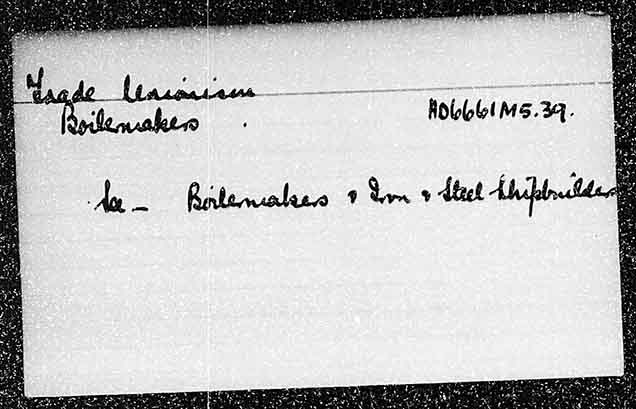 Trade Unionism
Boilermakers. HD6661M5.39.
See – Boilermakers & Iron & Steel Shipbuilders